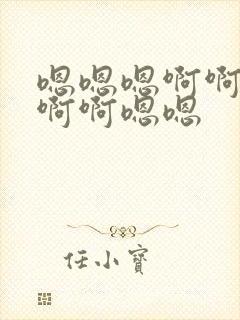 嗯嗯嗯啊啊
啊啊嗯嗯
任小寶